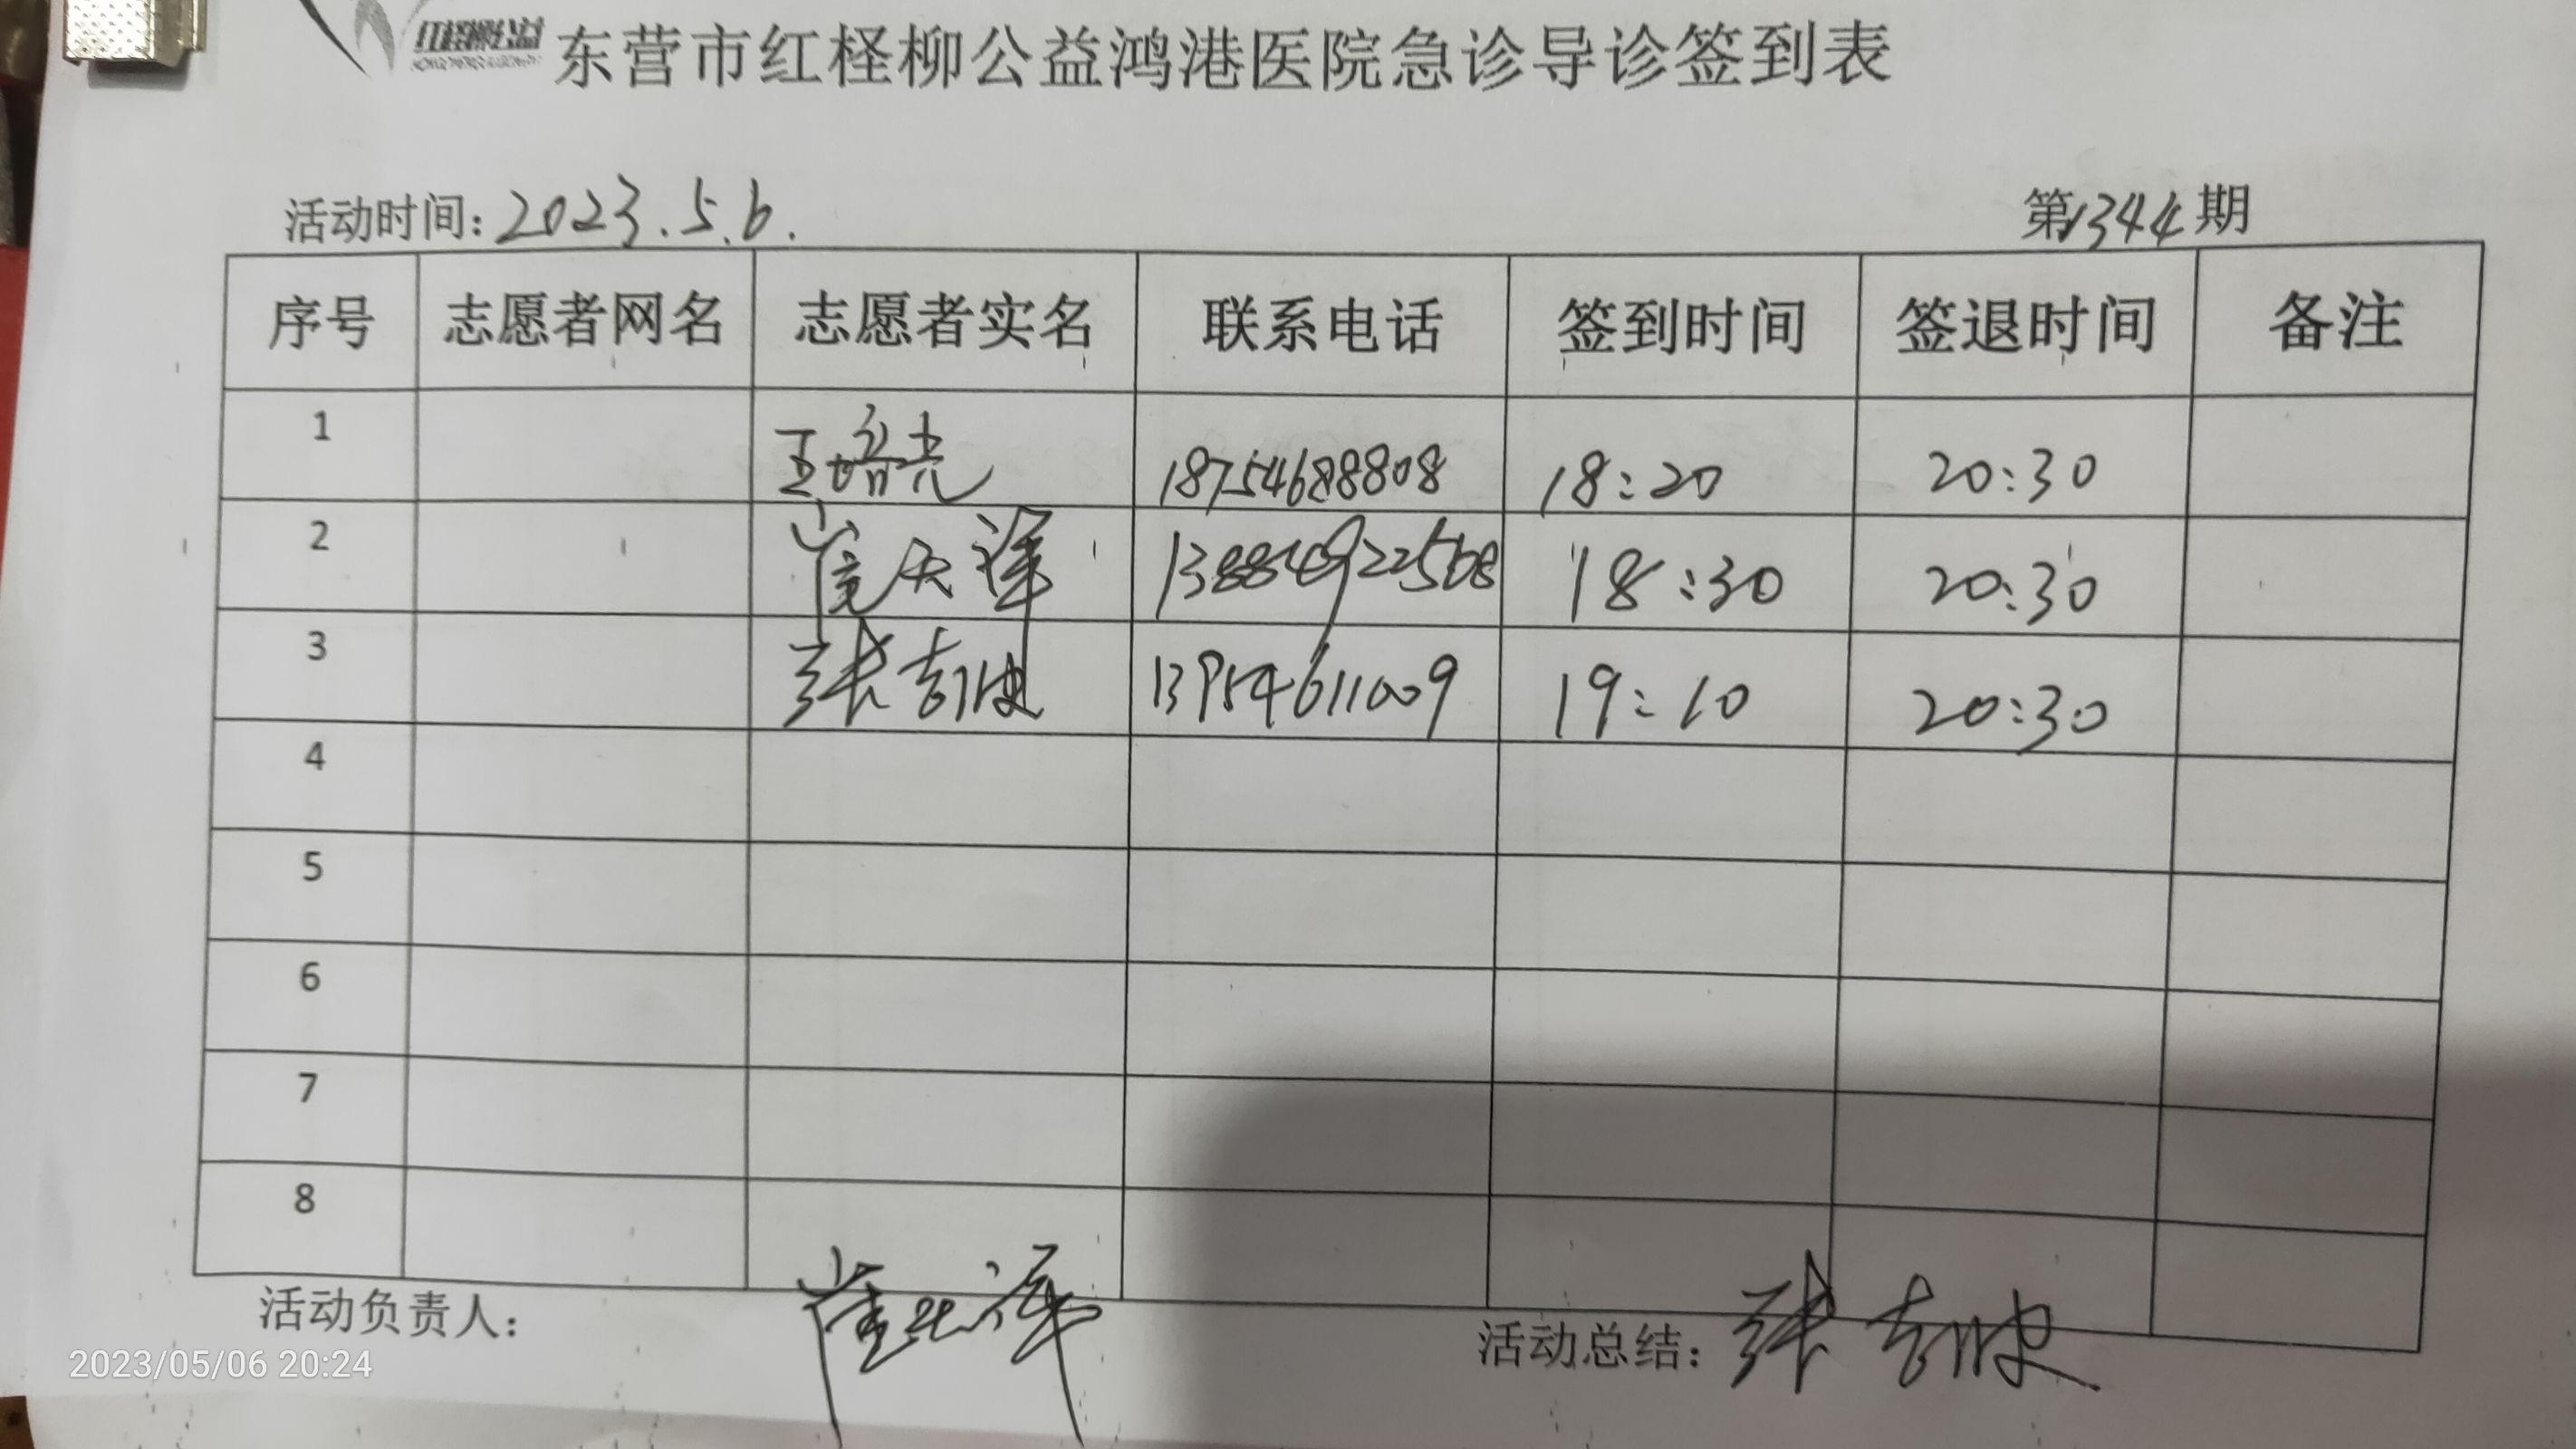 东营市红柽柳公益鸿港医院急诊导诊签到表
活动时间：2023.5.6.
第1344期
序号 志愿者网名 志愿者实名 联系电话 签到时间 签退时间 备注
1 18754688808 18:20 20:30
2 崔天祥 18:30 20:30
3 13954611009 19:10 20:30
4
5
6
7
8
活动负责人：
活动总结：
2023/05/06 20:24